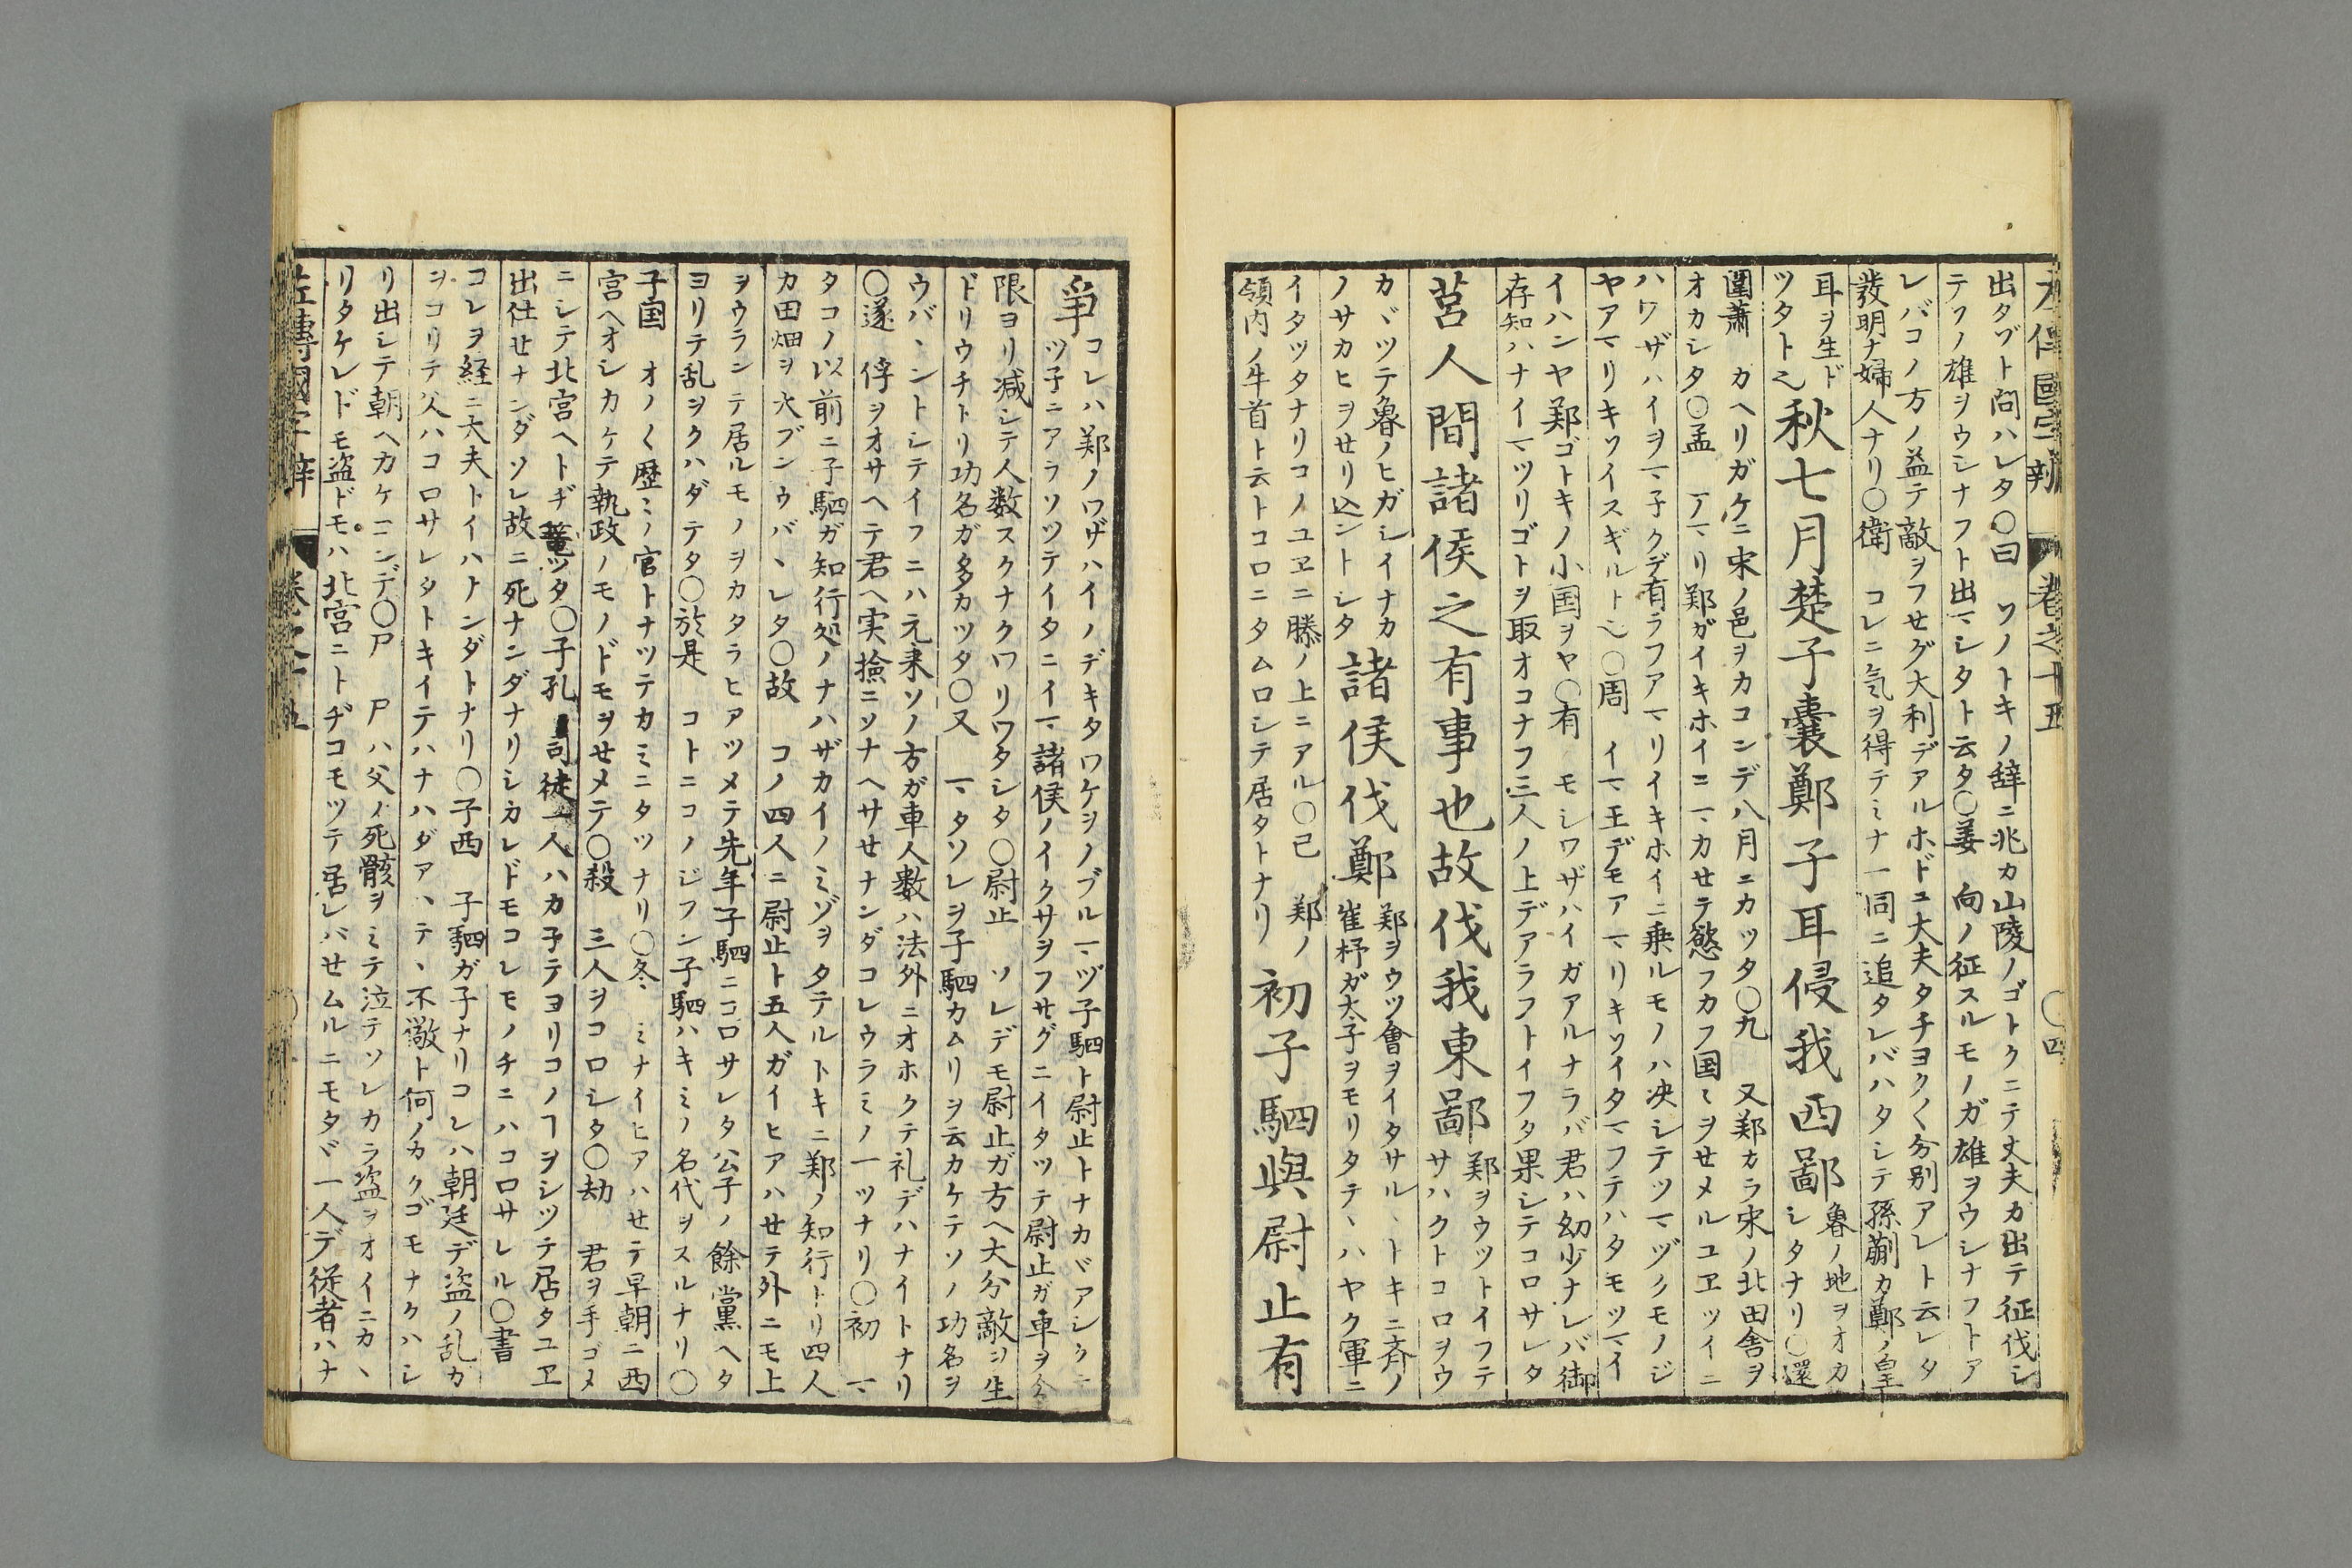 左傳國字辯 卷之十五 ○四
出タゾト問ハレタ○曰 ソノトキノ辞ニ兆カ山陵ノゴトクニテ丈夫カ出テ征伐シ
テソノ雄ヲウシナフト出マシタト云タ○姜 向ノ征スルモノガ雄ヲウシナフトア
レバコノ方ノ益テ敵ヲフセグ大利デアルホドニ大夫タチヨク〱分別アレト云レタ
発明ナ婦人ナリ○衛 コレニ気ヲ得テミナ一同ニ追タレバハタシテ孫蒯カ鄭ノ皇
耳ヲ生ド
ツタト之
秋七月楚子囊鄭子耳侵我西鄙
魯ノ地ヲオカ
シタナリ○還
圍蕭 カヘリガケニ宋ノ邑ヲカコンデ八月ニカツタ○九 又鄭カラ宋ノ北田舎ヲ
オカシタ○孟 アマリ鄭ガイキホイニマカセテ慾フカフ国〻ヲせメルユヱツイニ
ハワザハイヲマ子クデ有ラフアマリイキホイニ乗ルモノハ决シテツマヅクモノジ
ヤアマリキソイスギルト之○周 イマ王デモアマリキソイタマフテハタモツマイ
イハンヤ鄭ゴトキノ小国ヲヤ○有 モシワザハイガアルナラバ君ハ幼少ナレバ御
存知ハナイマツリゴトヲ取オコナフ三人ノ上デアラフトイフタ果シテコロサレタ
莒人間諸侯之有事也故伐我東鄙
鄭ヲウツトイフテ
サハクトコロヲウ
カヾツテ魯ノヒガシイナカ
ノサカヒヲせリ込ントシタ
諸侯伐鄭
鄭ヲウツ會ヲイタサル丶トキニ斉ノ
崔杼ガ太子ヲモリタテ丶ハヤク軍ニ
イタツタナリコノユヱニ滕ノ上ニアル○己 鄭ノ
領内ノ牛首ト云トコロニタムロシテ居タトナリ
初子駟與尉止有
爭
コレハ鄭ノワザハイノデキタワケヲノブルマヅ子駟ト尉止トナカヾアシクテ
ツ子ニアラソツテイタニイマ諸侯ノイクサヲフサグニイタツテ尉止ガ車ヲ令
限ヨリ減シテ人数スクナクワリワタシタ○尉止 ソレデモ尉止ガ方ヘ大分敵ヲ生
ドリウチトリ功名ガ多カツタ○又 マタソレヲ子駟カムリヲ云カケテソノ功名ヲ
ウバヽントシテイフニハ元来ソノ方ガ車人数ハ法外ニオホクテ礼デハナイトナリ
○遂 俘ヲオサヘテ君ヘ実撿ニソナヘサせナンダコレウラミノ一ツナリ○初 マ
タコノ以前ニ子駟ガ知行処ノナハザカイノミゾヲタテルトキニ鄭ノ知行トリ四人
カ田畑ヲ大ブンウバヽレタ○故 コノ四人ニ尉止ト五人ガイヒアハせテ外ニモ上
ヲウランテ居ルモノヲカタラヒアツメテ先年子駟ニコロサレタ公子ノ餘黨ヘタ
ヨリテ乱ヲクハダテタ○於是 コトニコノジフン子駟ハキミノ名代ヲスルナリ○
子国 オノ〱歴〻ノ官トナツテカミニタツナリ○冬 ミナイヒアハせテ早朝ニ西
宮ヘオシカケテ執政ノモノドモヲせメテ○殺 三人ヲコロシタ○劫 君ヲ手ゴメ
ニシテ北宮ヘトヂ篭ツタ○子孔 司徒一人ハカ子テヨリコノヿヲシツテ居タユヱ
出仕せナンダソレ故ニ死ナンダナリシカレドモコレモノチニハコロサレル○書
コレヲ経ニ大夫トイハナンダトナリ○子西 子駟ガ子ナリコレハ朝廷デ盗ノ乱カ
ヲコリテ父ハコロサレタトキイテハナハダアハテ丶不儆ト何ノカクゴモナクハシ
リ出シテ朝ヘカケコンデ○尸 尸ハ父ノ死骸ヲミテ泣テソレカラ盗ヲオイニカヽ
リタケレドモ盗ドモハ北宮ニトヂコモツテ居レバせムルニモタヾ一人デ従者ハナ
左傳國字辯 卷之十五